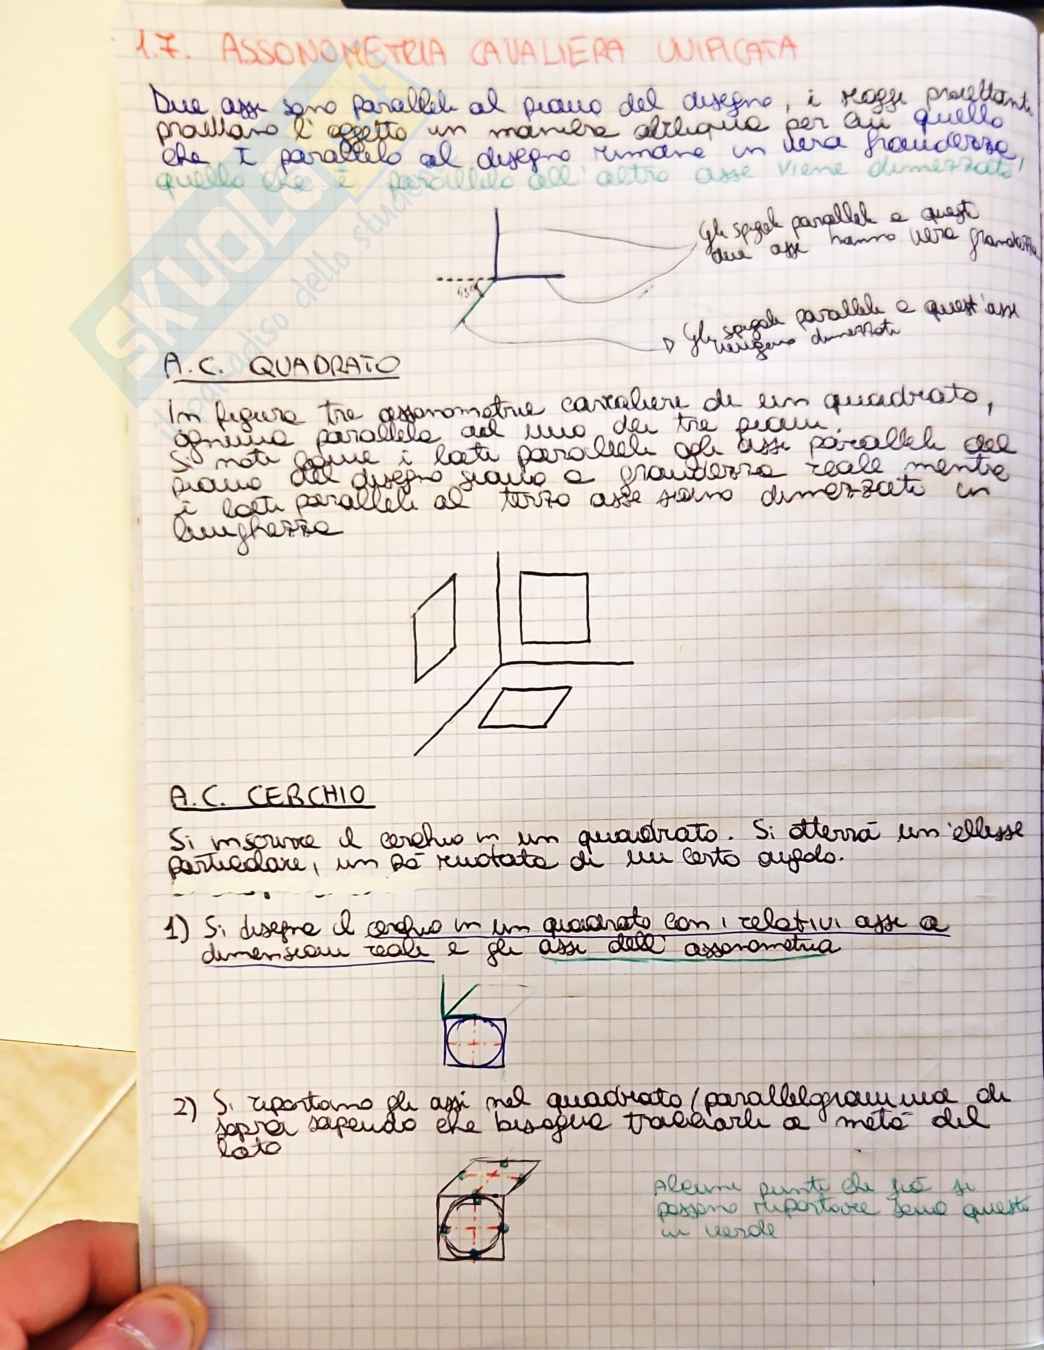 1.7. ASSONOMETRIA CAVALIERA UNIFICATA
Due assi sono paralleli al piano del disegno, i raggi proiettanti
proiettano l'oggetto in maniera obliqua per cui quello
che è parallelo al disegno rimane in vera grandezza,
quello che è parallelo all'altro asse viene dimezzato!
SKUOLA
Il paradiso dello studente
Gli spigoli paralleli a questi
due assi hanno vera grandezza
45°
Gli spigoli paralleli a quest'asse
vengono dimezzati
A.C. QUADRATO
In figura tre assonometrie cavaliere di un quadrato,
ognuna parallela ad uno dei tre piani.
Si noti come i lati paralleli agli assi paralleli del
piano del disegno siano a grandezza reale mentre
i lati paralleli al terzo asse siano dimezzati in
lunghezza
A.C. CERCHIO
Si inscrive il cerchio in un quadrato. Si otterrà un'ellisse
particolare, un pò ruotata di un certo angolo.
1) Si disegna il cerchio in un quadrato con i relativi assi a
dimensioni reali e gli assi dell'assonometria
2) Si riportano gli assi nel quadrato/parallelogramma di
sopra sapendo che bisogna tracciarli a metà del
lato
Alcuni punti che già si
possono riportare sono questi
in verde